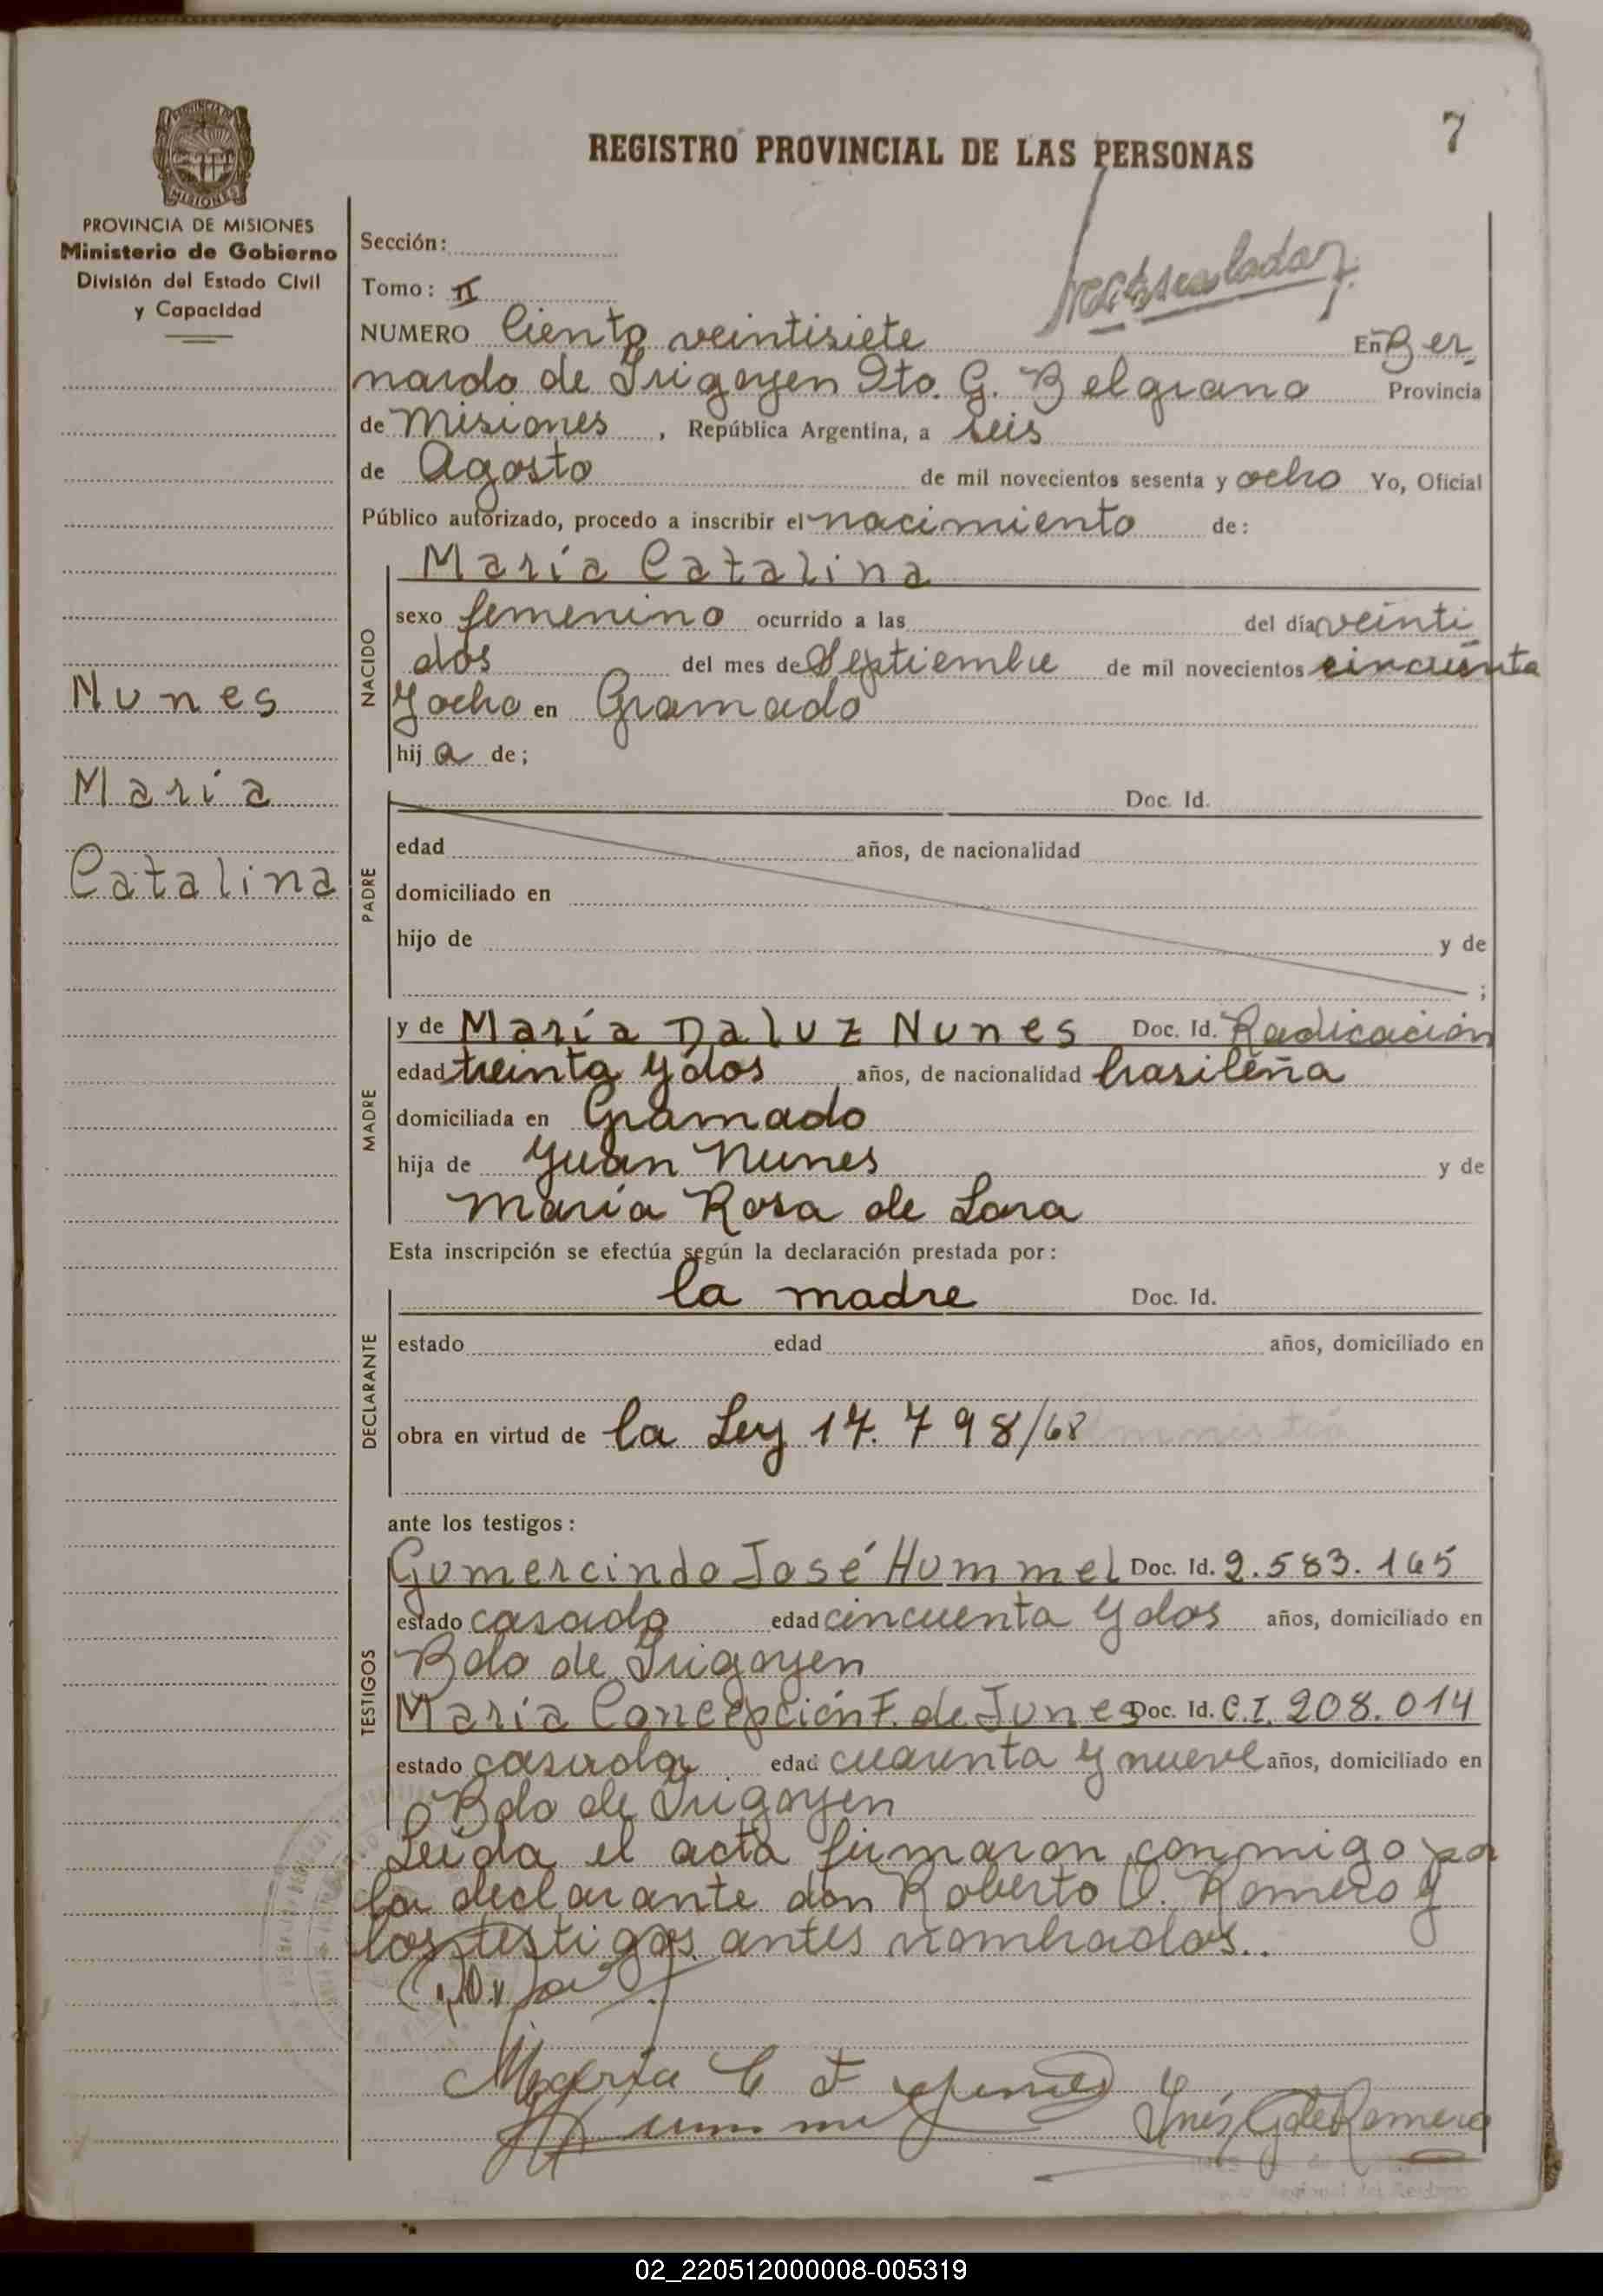 7
REGISTRO PROVINCIAL DE LAS PERSONAS
PROVINCIA DE MISIONES
Ministerio de Gobierno
División del Estado Civil
y Capacidad
Nunes
María
Catalina
Sección:
Tomo: II
NUMERO Ciento veintisiete En Ber-
nardo de Irigoyen Dto. G. Belgrano Provincia
de Misiones, República Argentina, a seis
de Agosto de mil novecientos sesenta y ocho Yo, Oficial
Público autorizado, procedo a inscribir el nacimiento de:
NACIDO
María Catalina
sexo femenino ocurrido a las del día veinti
dos del mes de Septiembre de mil novecientos cincuenta
y ocho en Gramado
hija de;
PADRE
Doc. Id.
edad años, de nacionalidad
domiciliado en
hijo de y de
;
MADRE
y de María Daluz Nunes Doc. Id. Radicación
edad treinta y dos años, de nacionalidad brasileña
domiciliada en Gramado
hija de Juan Nunes y de
María Rosa de Lara
Esta inscripción se efectúa según la declaración prestada por:
DECLARANTE
la madre Doc. Id.
estado edad años, domiciliado en
obra en virtud de la Ley 17.798/68
ante los testigos:
TESTIGOS
Gumercindo José Hummel Doc. Id. 2.583.165
estado casado edad cincuenta y dos años, domiciliado en
Bdo de Irigoyen
María Concepción F. de Junes Doc. Id. C.I. 208.014
estado casada edad cuarenta y nueve años, domiciliado en
Bdo de Irigoyen
Leída el acta firmaron conmigo por
la declarante don Roberto O. Romero y
los testigos antes nombrados..
María C F
Inés G de Romero
02_220512000008-005319